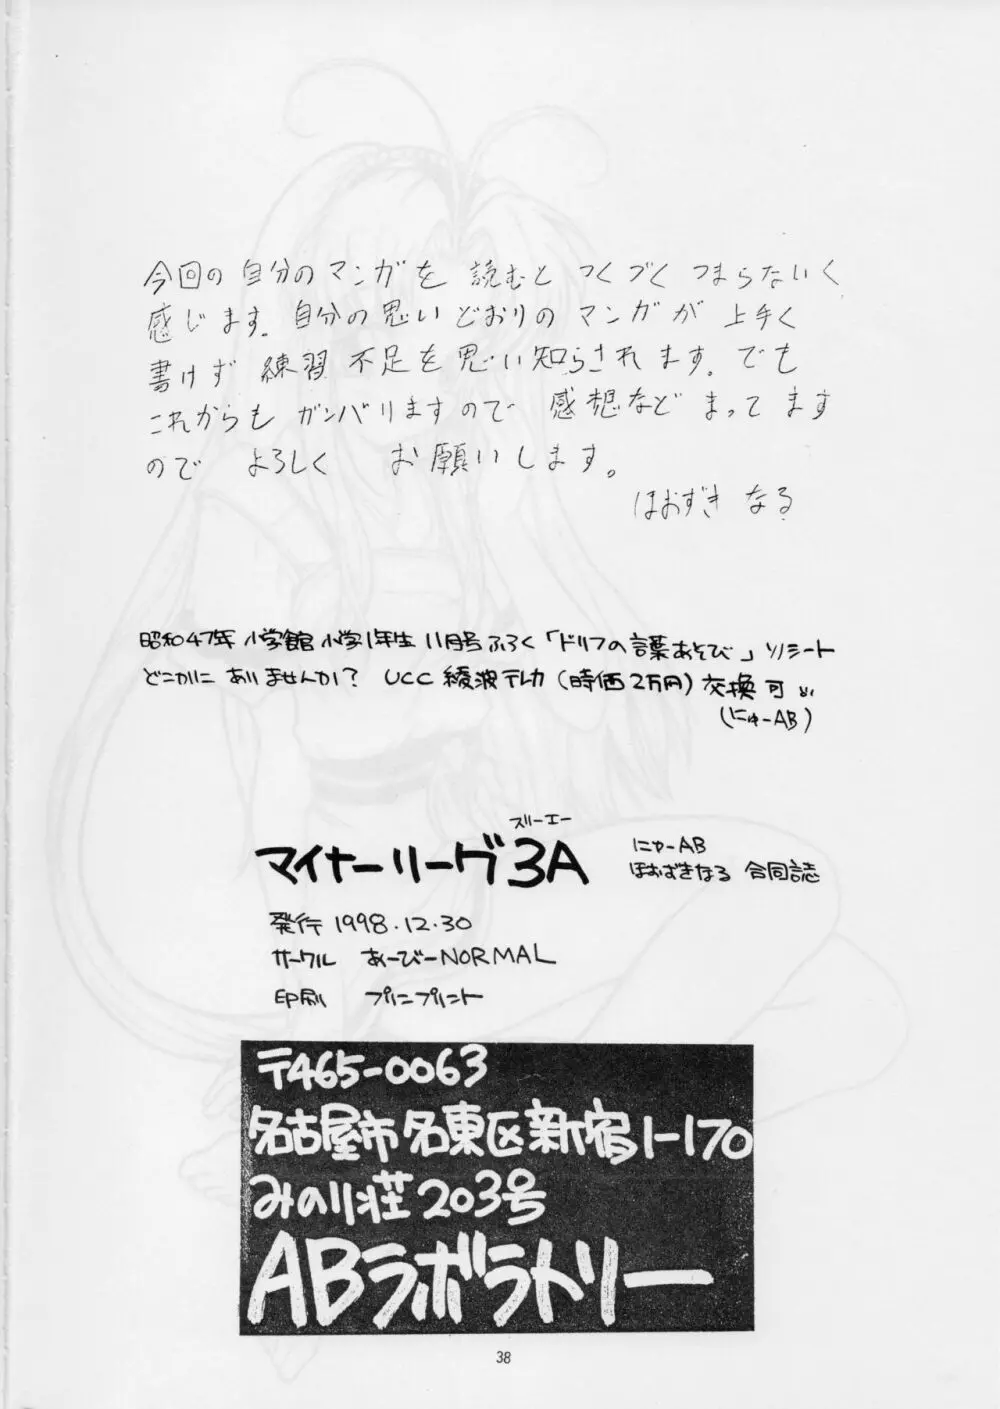 今回の自分のマンガを 読むと つくづく つまらないく
感じます。自分の思いどおりの マンガが 上手く
書けず 練習不足を思い知らされます。でも
これからも ガンバリますので 感想など まってます
ので よろしく お願いします。
ほおずき なる
昭和47年 小学館 小学1年生 11月号 ふろく「ドリフの言葉あそび」ソノシート
どこかに ありませんか? UCC 綾波テレカ (時価2万円) 交換 可
(にゅーAB)
スリーエー
マイナーリーグ3A
にゅーAB
ほおずきなる 合同誌
発行 1998.12.30
サークル あーびーNORMAL
印刷 プリニプリント
〒465-0063
名古屋市名東区新宿1-170
みのり荘203号
ABラボラトリー
38